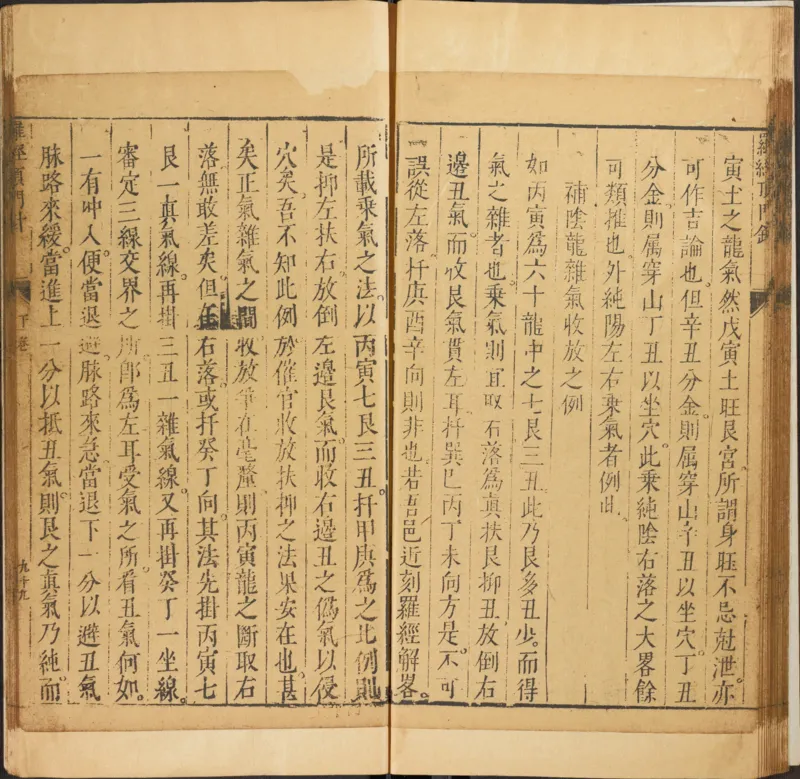 羅經頂門針
寅土之龍氣然戊寅土旺艮宮所謂身旺不忌尅泄亦
可作吉論也但辛丑分金則属穿山辛丑以坐穴丁丑
分金則属穿山丁丑以坐穴此乘純陰右落之大畧餘
可類推也外純陽左右乘氣者例此
補陰龍雜氣收放之例
如丙寅爲六十龍中之七艮三丑此乃艮多丑少而得
氣之雜者也乘氣則宜取右落爲眞扶艮抑丑放倒右
邊丑氣而收艮氣貫左耳扦巽巳丙丁未向方是不可
誤從左落扦庚酉辛向則非也若吾邑近刻羅經解畧
所載乘氣之法以丙寅七艮三丑扦甲庚爲之此例則
是抑左扶右放倒左邊艮氣而收右邊丑之僞氣以侵
穴矣吾不知此例於催官收放扶抑之法果安在也甚
矣正氣雜氣之間收放筆在毫釐則丙寅龍之斷取右
落無敢差矣但右落或扦癸丁向其法先掛丙寅七
艮一眞氣線再掛三丑一雜氣線又再掛癸丁一坐線
審定三線交界之所郎爲左耳受氣之所看丑氣何如
一有冲入便當退避脉路來急當退下一分以避丑氣
脉路來緩當進上一分以抵丑氣則艮之眞氣乃純而
羅經頂門針
下卷
九十九